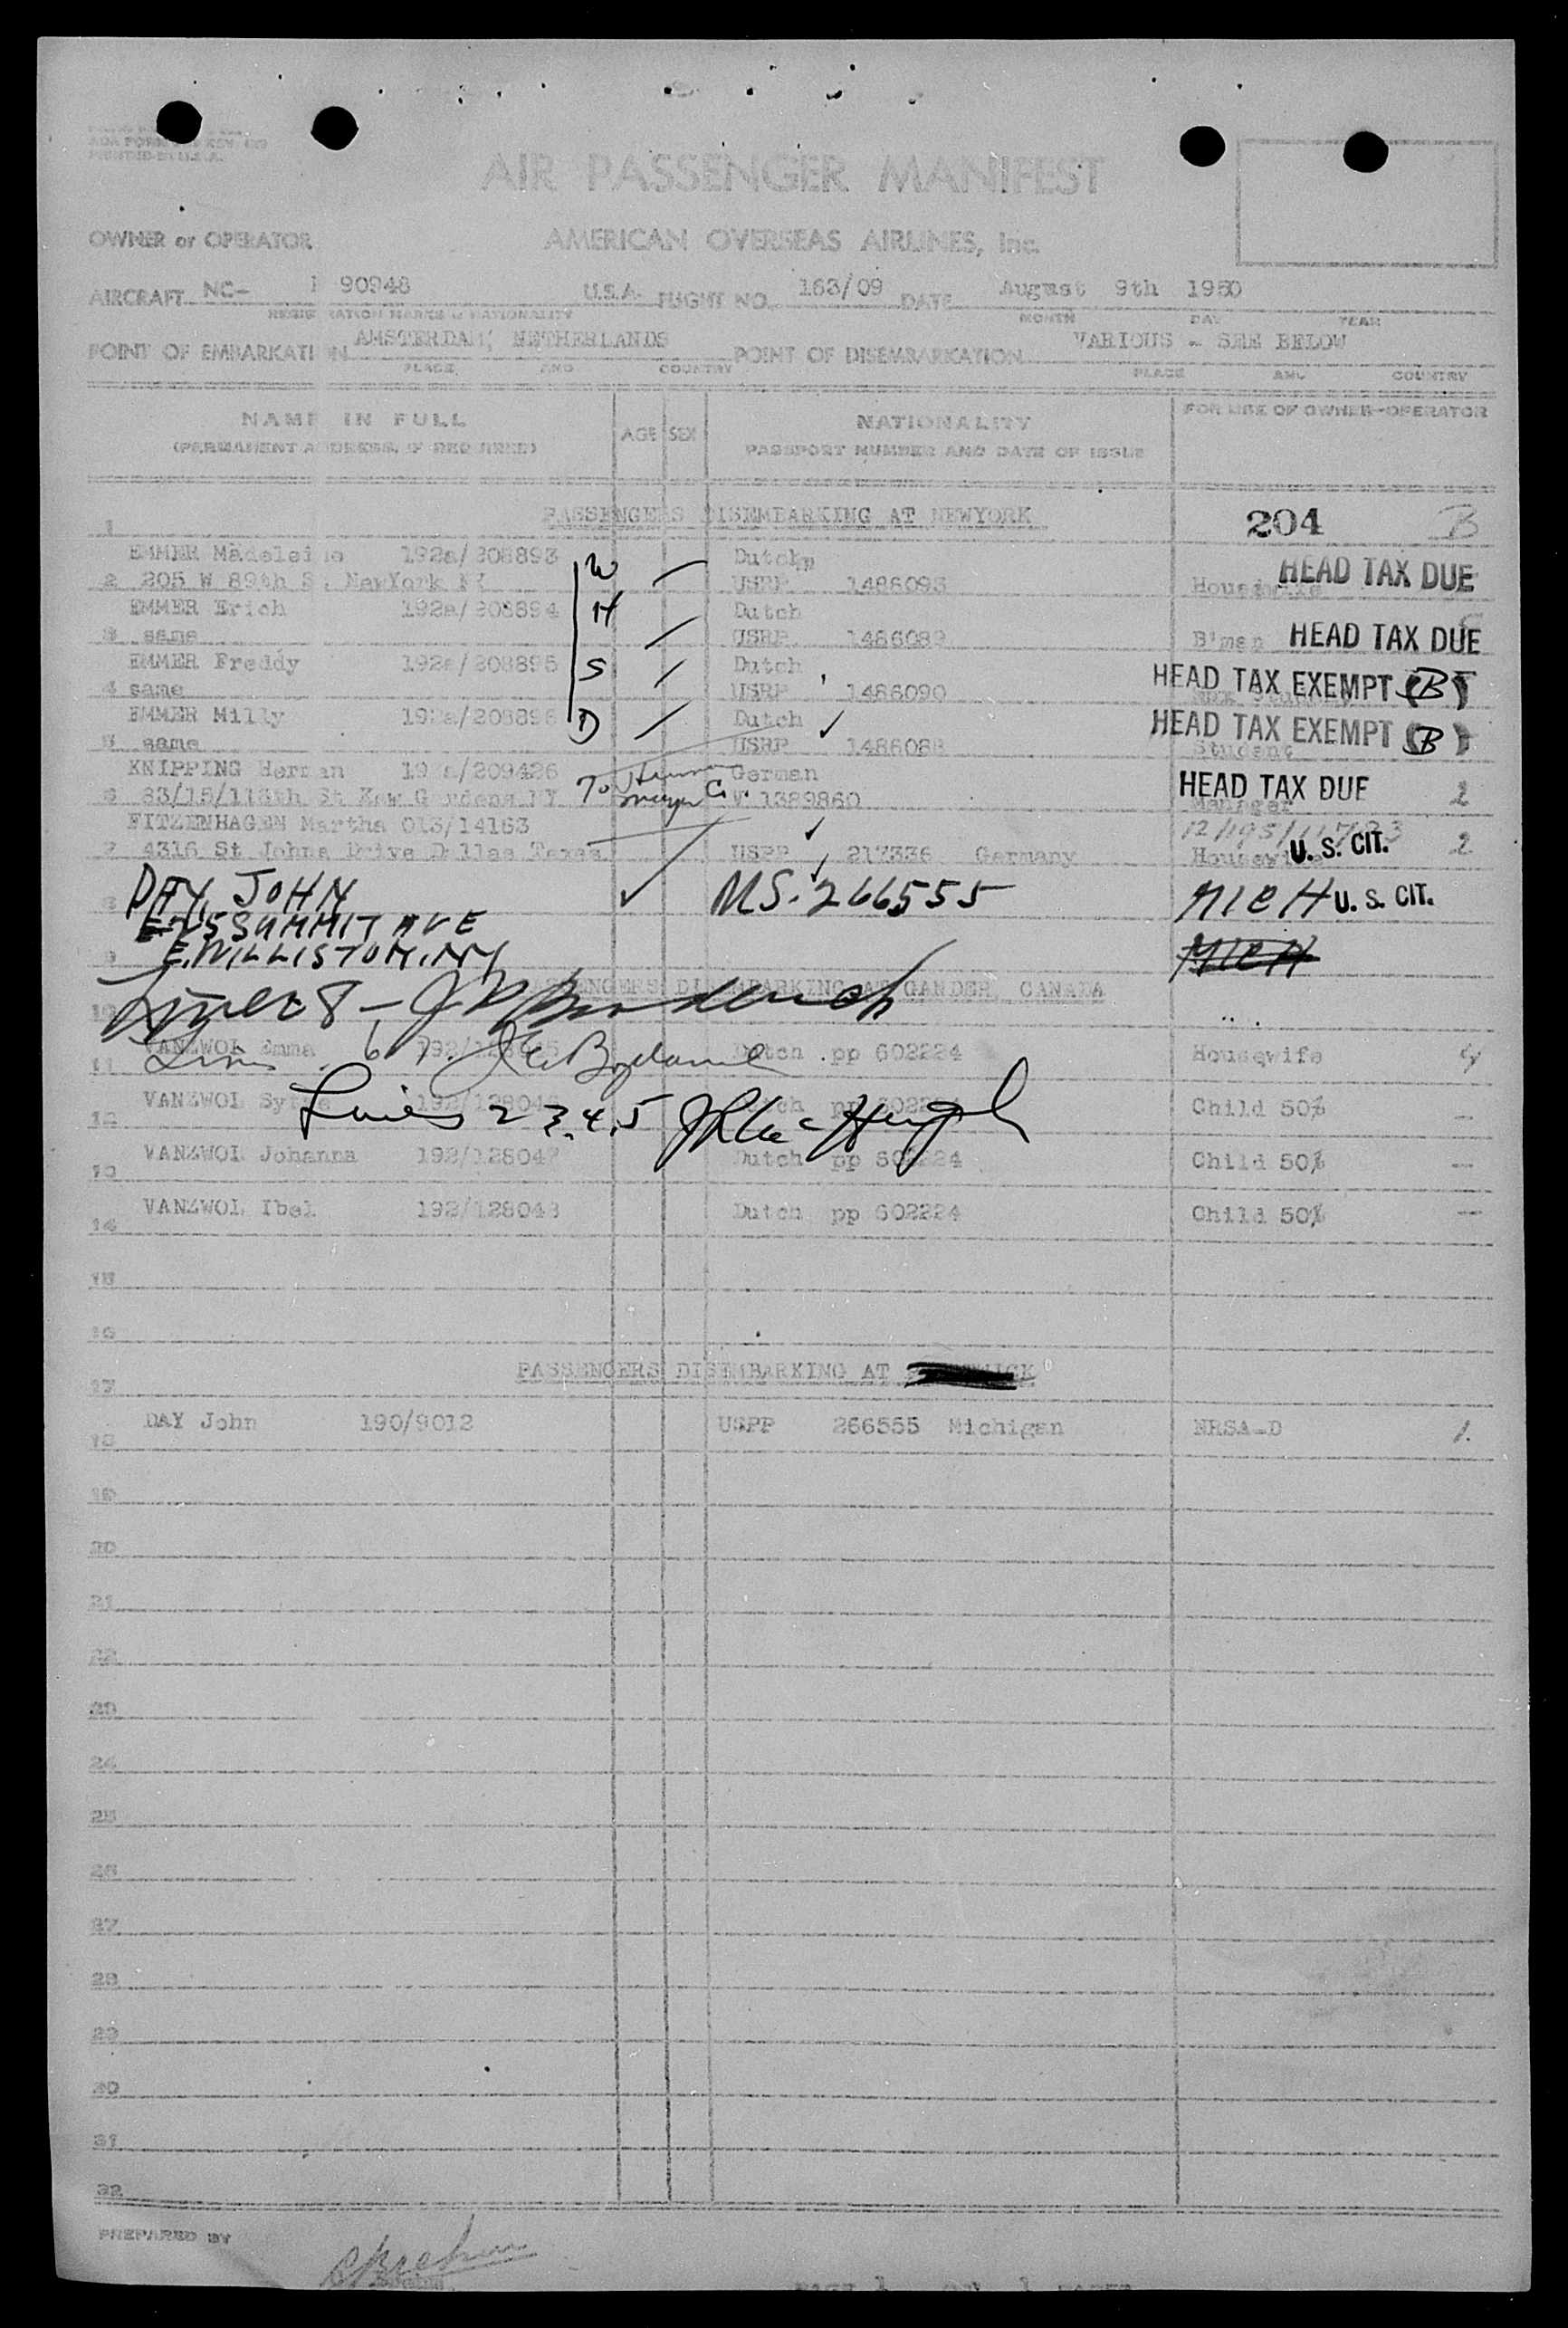 PRINTED IN U.S.A.
AIR PASSENGER MANIFEST
OWNER or OPERATOR AMERICAN OVERSEAS AIRLINES, Inc.
AIRCRAFT NC- 90948 U.S.A. FLIGHT NO. 163/09 DATE August 9th 1950
REGISTRATION MARKS & NATIONALITY MONTH DAY YEAR
POINT OF EMBARKATION AMSTERDAM, NETHERLANDS POINT OF DISEMBARKATION VARIOUS - SEE BELOW
PLACE AND COUNTRY PLACE AND COUNTRY
NAME IN FULL AGE SEX NATIONALITY FOR USE OF OWNER-OPERATOR
(PERMANENT ADDRESS, IF REQUIRED) PASSPORT NUMBER AND DATE OF ISSUE
1 PASSENGERS DISEMBARKING AT NEWYORK 204 B
EMMER Madeleine 192a/208893 W Dutch
2 205 W 89th St. NewYork NY USRP 1486093 Housewife HEAD TAX DUE
EMMER Erich 192a/208894 H Dutch
3 same USRP 1486089 B'man HEAD TAX DUE
EMMER Freddy 192a/208895 S Dutch
4 same USRP 1486090 HEAD TAX EXEMPT (B)
EMMER Milly 192a/208896 D Dutch
5 same USRP 1486088 Student HEAD TAX EXEMPT (B)
KNIPPING Herman 192a/209426 German
6 83/15/116th St Kew Gardens NY V 1389860 Manager HEAD TAX DUE 2
FITZENHAGEN Martha 013/14163
7 4316 St Johns Drive Dallas Texas USPP 217336 Germany Housewife U.S. CIT. 2
8 DAY, JOHN MS. 266555 MICH U.S. CIT.
E-25 SUMMIT AVE
9 E. WILLISTON, NY MICH
10 PASSENGERS DISEMBARKING AT GANDER, CANADA
Line 8 -
11 VANZWOL Emma Dutch pp 602224 Housewife 4
12 VANZWOL Dutch pp 602224 Child 50%
Lines 2 3. 4. 5
13 VANZWOL Johanna 192/128047 Dutch pp 602224 Child 50%
14 VANZWOL Ibel 192/128048 Dutch pp 602224 Child 50%
15
16
17 PASSENGERS DISEMBARKING AT
18 DAY John 190/9012 USPP 266555 Michigan NRSA-D 1.
19
20
21
22
23
24
25
26
27
28
29
30
31
32
PREPARED BY